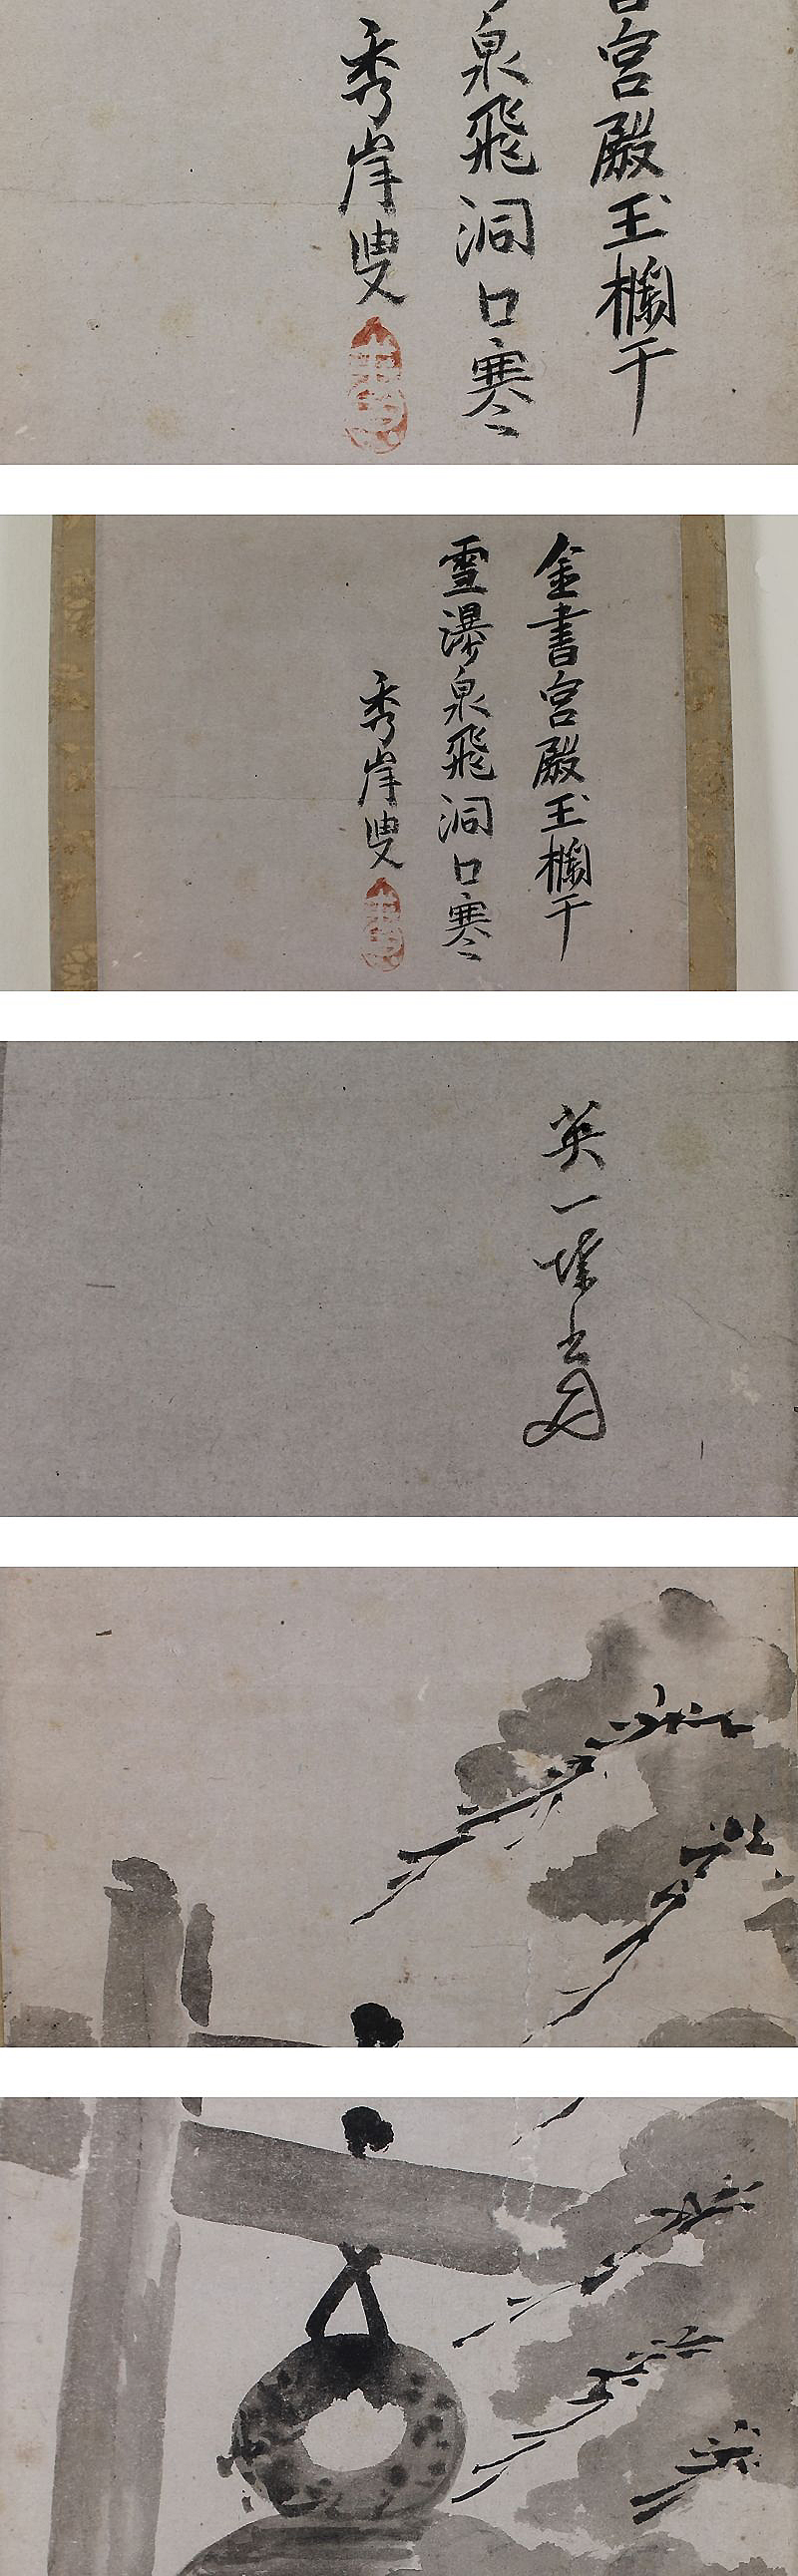 宮殿玉欄干
泉飛洞口寒
秀岸叟
金書宮殿玉欄干
雪瀑泉飛洞口寒
秀岸叟
英一蝶